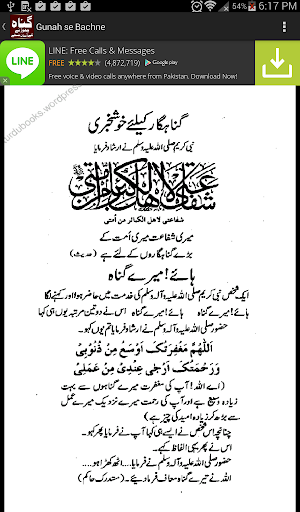 6:17 PM
گناہ
Gunah se Bachne
LINE: Free Calls & Messages
FREE ★★★★★ (4,872,719) Google play
Free voice & video calls anywhere from Pakistan. Download Now!
LINE
urdubooks.wordpress
گناہگار کیلئے خوشخبری
نبی کریم صلی اللہ علیہ وسلم نے ارشاد فرمایا
شفاعتی لاهل الکبائر من أمتی
شفاعتی لاهل الکبائر من أمتی
میری شفاعت میری اُمت کے
بڑے گناہگاروں کے لئے ہے (حدیث)
ہائے! میرے گناہ
ایک شخص نبی کریم صلی اللہ علیہ وآلہ وسلم کی خدمت میں حاضر ہوا اور کہنے لگا
ہائے! میرے گناہ ہائے! میرے گناہ اس نے دو تین مرتبہ یوں ہی کہا
حضور صلی اللہ علیہ وسلم نے ارشاد فرمایا تم یوں کہو۔
اَللّٰهُمَّ مَغْفِرَتُکَ اَوْسَعُ مِنْ ذُنُوْبِیْ
وَرَحْمَتُکَ اَرْجٰی عِنْدِیْ مِنْ عَمَلِیْ
(اے اللہ! آپ کی مغفرت میرے گناہوں سے بہت
زیادہ وسیع ہے اور آپ کی رحمت میرے نزدیک میرے عمل
سے بڑھ کر زیادہ امید کی چیز ہے)
چنانچہ اس شخص نے ایسے ہی کہا آپ نے فرمایا پھر کہو۔
اس نے پھر یہی الفاظ کہے۔
حضور صلی اللہ علیہ وآلہ وسلم نے فرمایا.... اٹھ کھڑا ہو....
اللہ نے تیرے گناہ معاف فرما دیئے۔ (مستدرک حاکم)